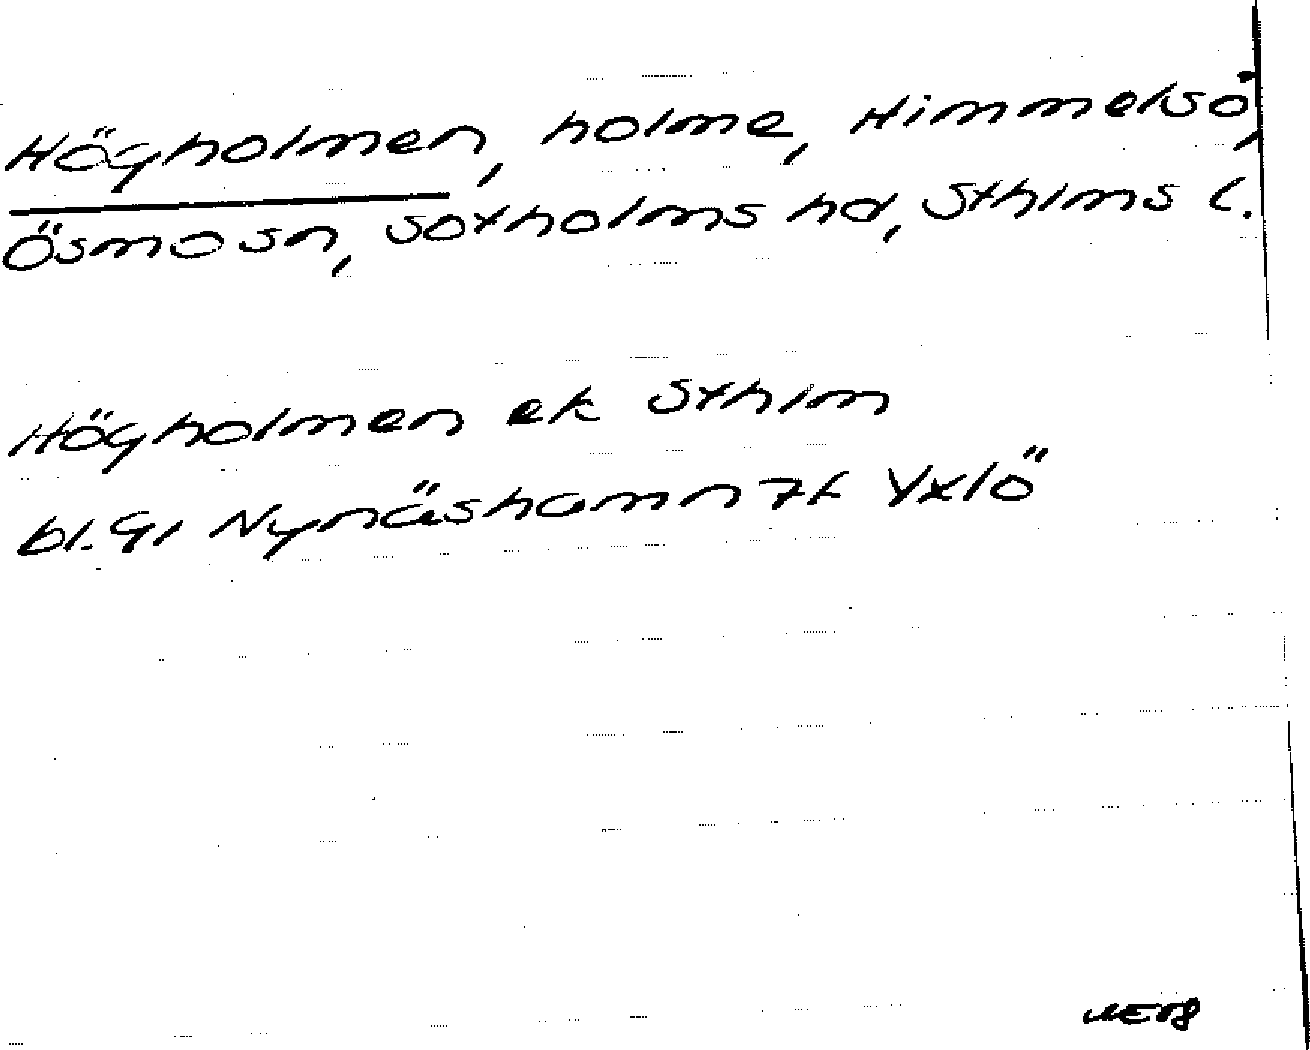 Högholmen, holme, Himmelsö,
Ösmo sn, Sotholms hd, Sthlms l.
Högholmen ek Sthlm
bl. 91 Nynäshamn 7f Yxlö